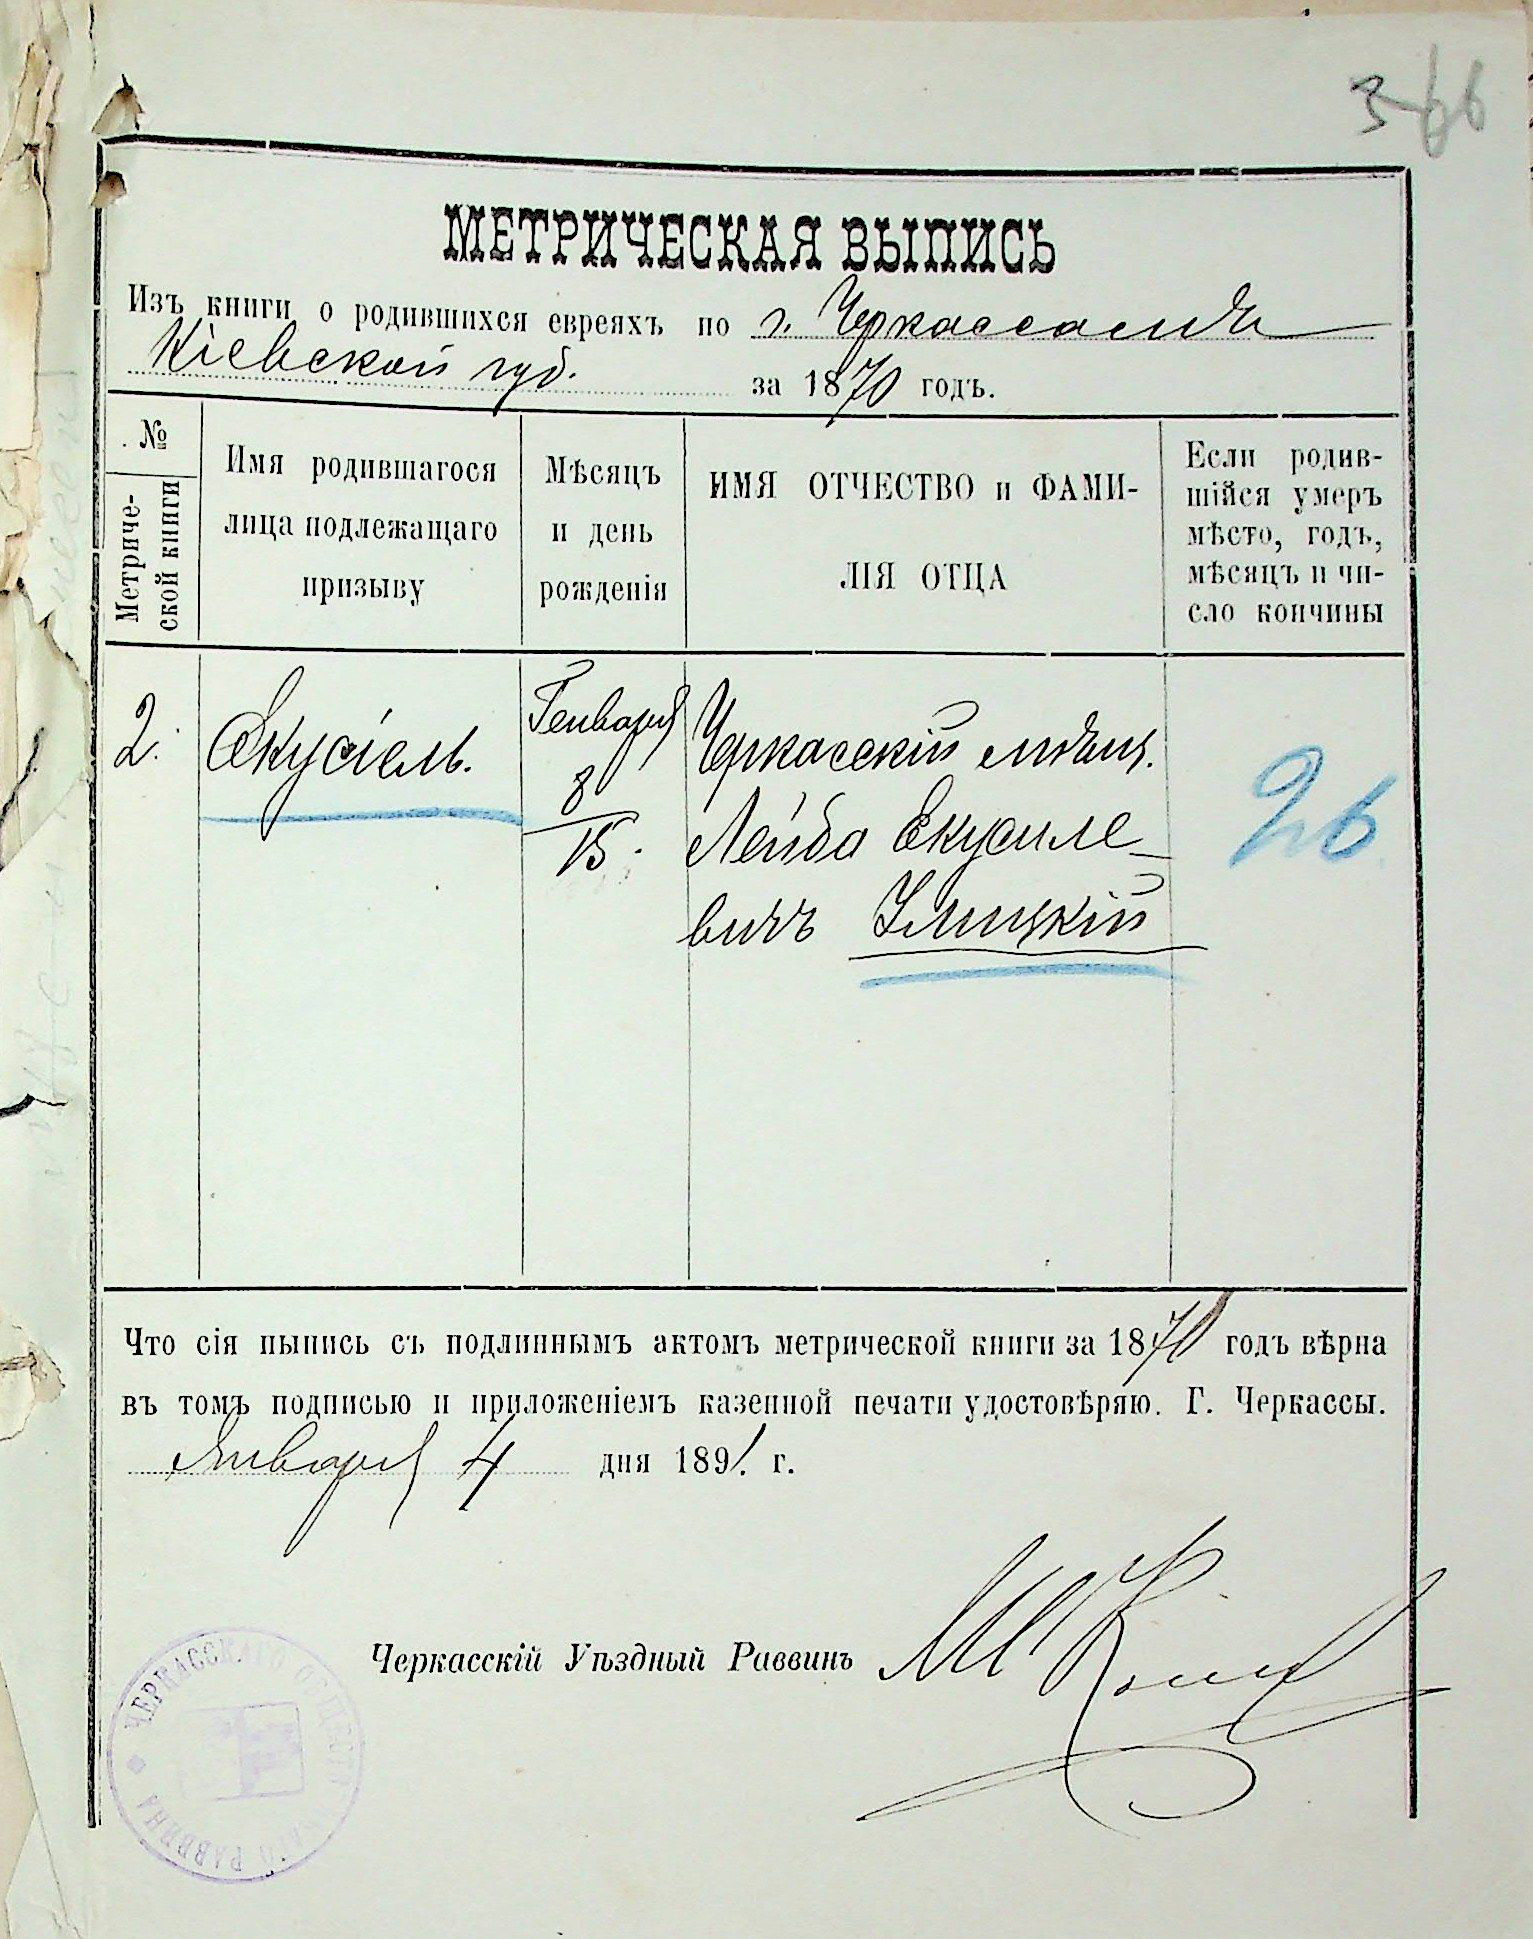 366
МЕТРИЧЕСКАЯ ВЫПИСЬ
Изъ книги о родившихся евреяхъ по г. Черкассамъ
Кіевской губ. за 1870 годъ.
№ Метриче-ской книги
Имя родившагося лица подлежащаго призыву
Мѣсяцъ и день рожденія
ИМЯ ОТЧЕСТВО и ФАМИ-
ЛІЯ ОТЦА
Если родив-
шійся умеръ
мѣсто, годъ,
мѣсяцъ и чи-
сло кончины
2.
Екусіель.
Генваря
8
15.
Черкасскій мѣщ.
Лейба Екусиле-
вичъ Улицкій
26
Что сія выпись съ подлиннымъ актомъ метрической книги за 1870 годъ вѣрна
въ томъ подписью и приложеніемъ казенной печати удостовѣряю. Г. Черкассы.
Января 4 дня 1891. г.
Черкасскій Уѣздный Раввинъ
ЧЕРКАССКАГО ОБЩЕСТВЕННАГО РАВВИНА